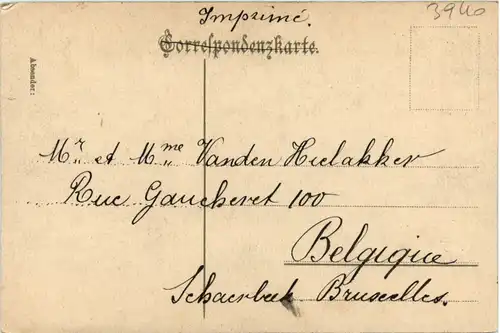 Imprimé.
3940
Correspondenzkarte.
Absender:
Mr. et Mme Vanden Hielakker
Rue Gaucheret 100
Belgique
Schaerbeek Bruxelles.